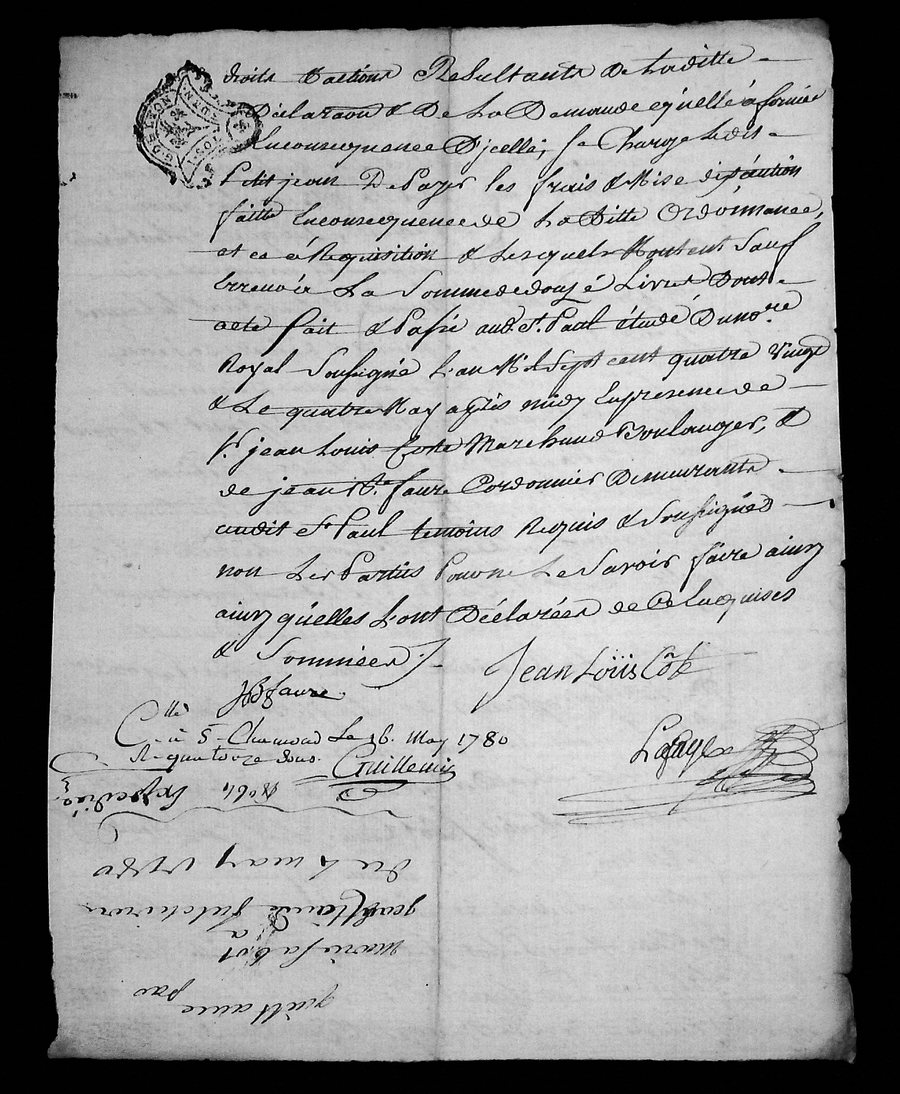 G. DE LYON
droits & actions Resultants De Laditte
Déclaraon & De La Demande qu'elle à formée
Enconsequence Djcelle, se Charge Ledit
Petitjean De Payer les frais & Mise dexécution
faitte Enconsecquence de La Ditte Ordónnance,
et ce à Requisition & Lesquels Montent Sauf
Erreur à La Somme de douze Livres Dont
acte fait & Passé aud. St. Paul étude Du no.re
Royal Soussigné L'an Mil Sept cent quatre vingt
& Le quatre May après midy En presence de
Sr. jean Louis Coste Marchand Boulanger, &
de jean Bte. faure Cordonnier Demeurants
audit St. Paul temoins Requis & Soussignés
non Les Parties Pour ne Le Savoir faire ainsy
ainsy qu'elles L'ont Déclarées de Ce Enquises
& Sommées ./.
JBfaure.
Jean Loüis Côte
C.llé à St. Chamond Le 16. May 1780
R. quatorze sous.
Guillemin
Lafaye
Expediée
du 4 may 1780
jean
a
marie
quittance
par